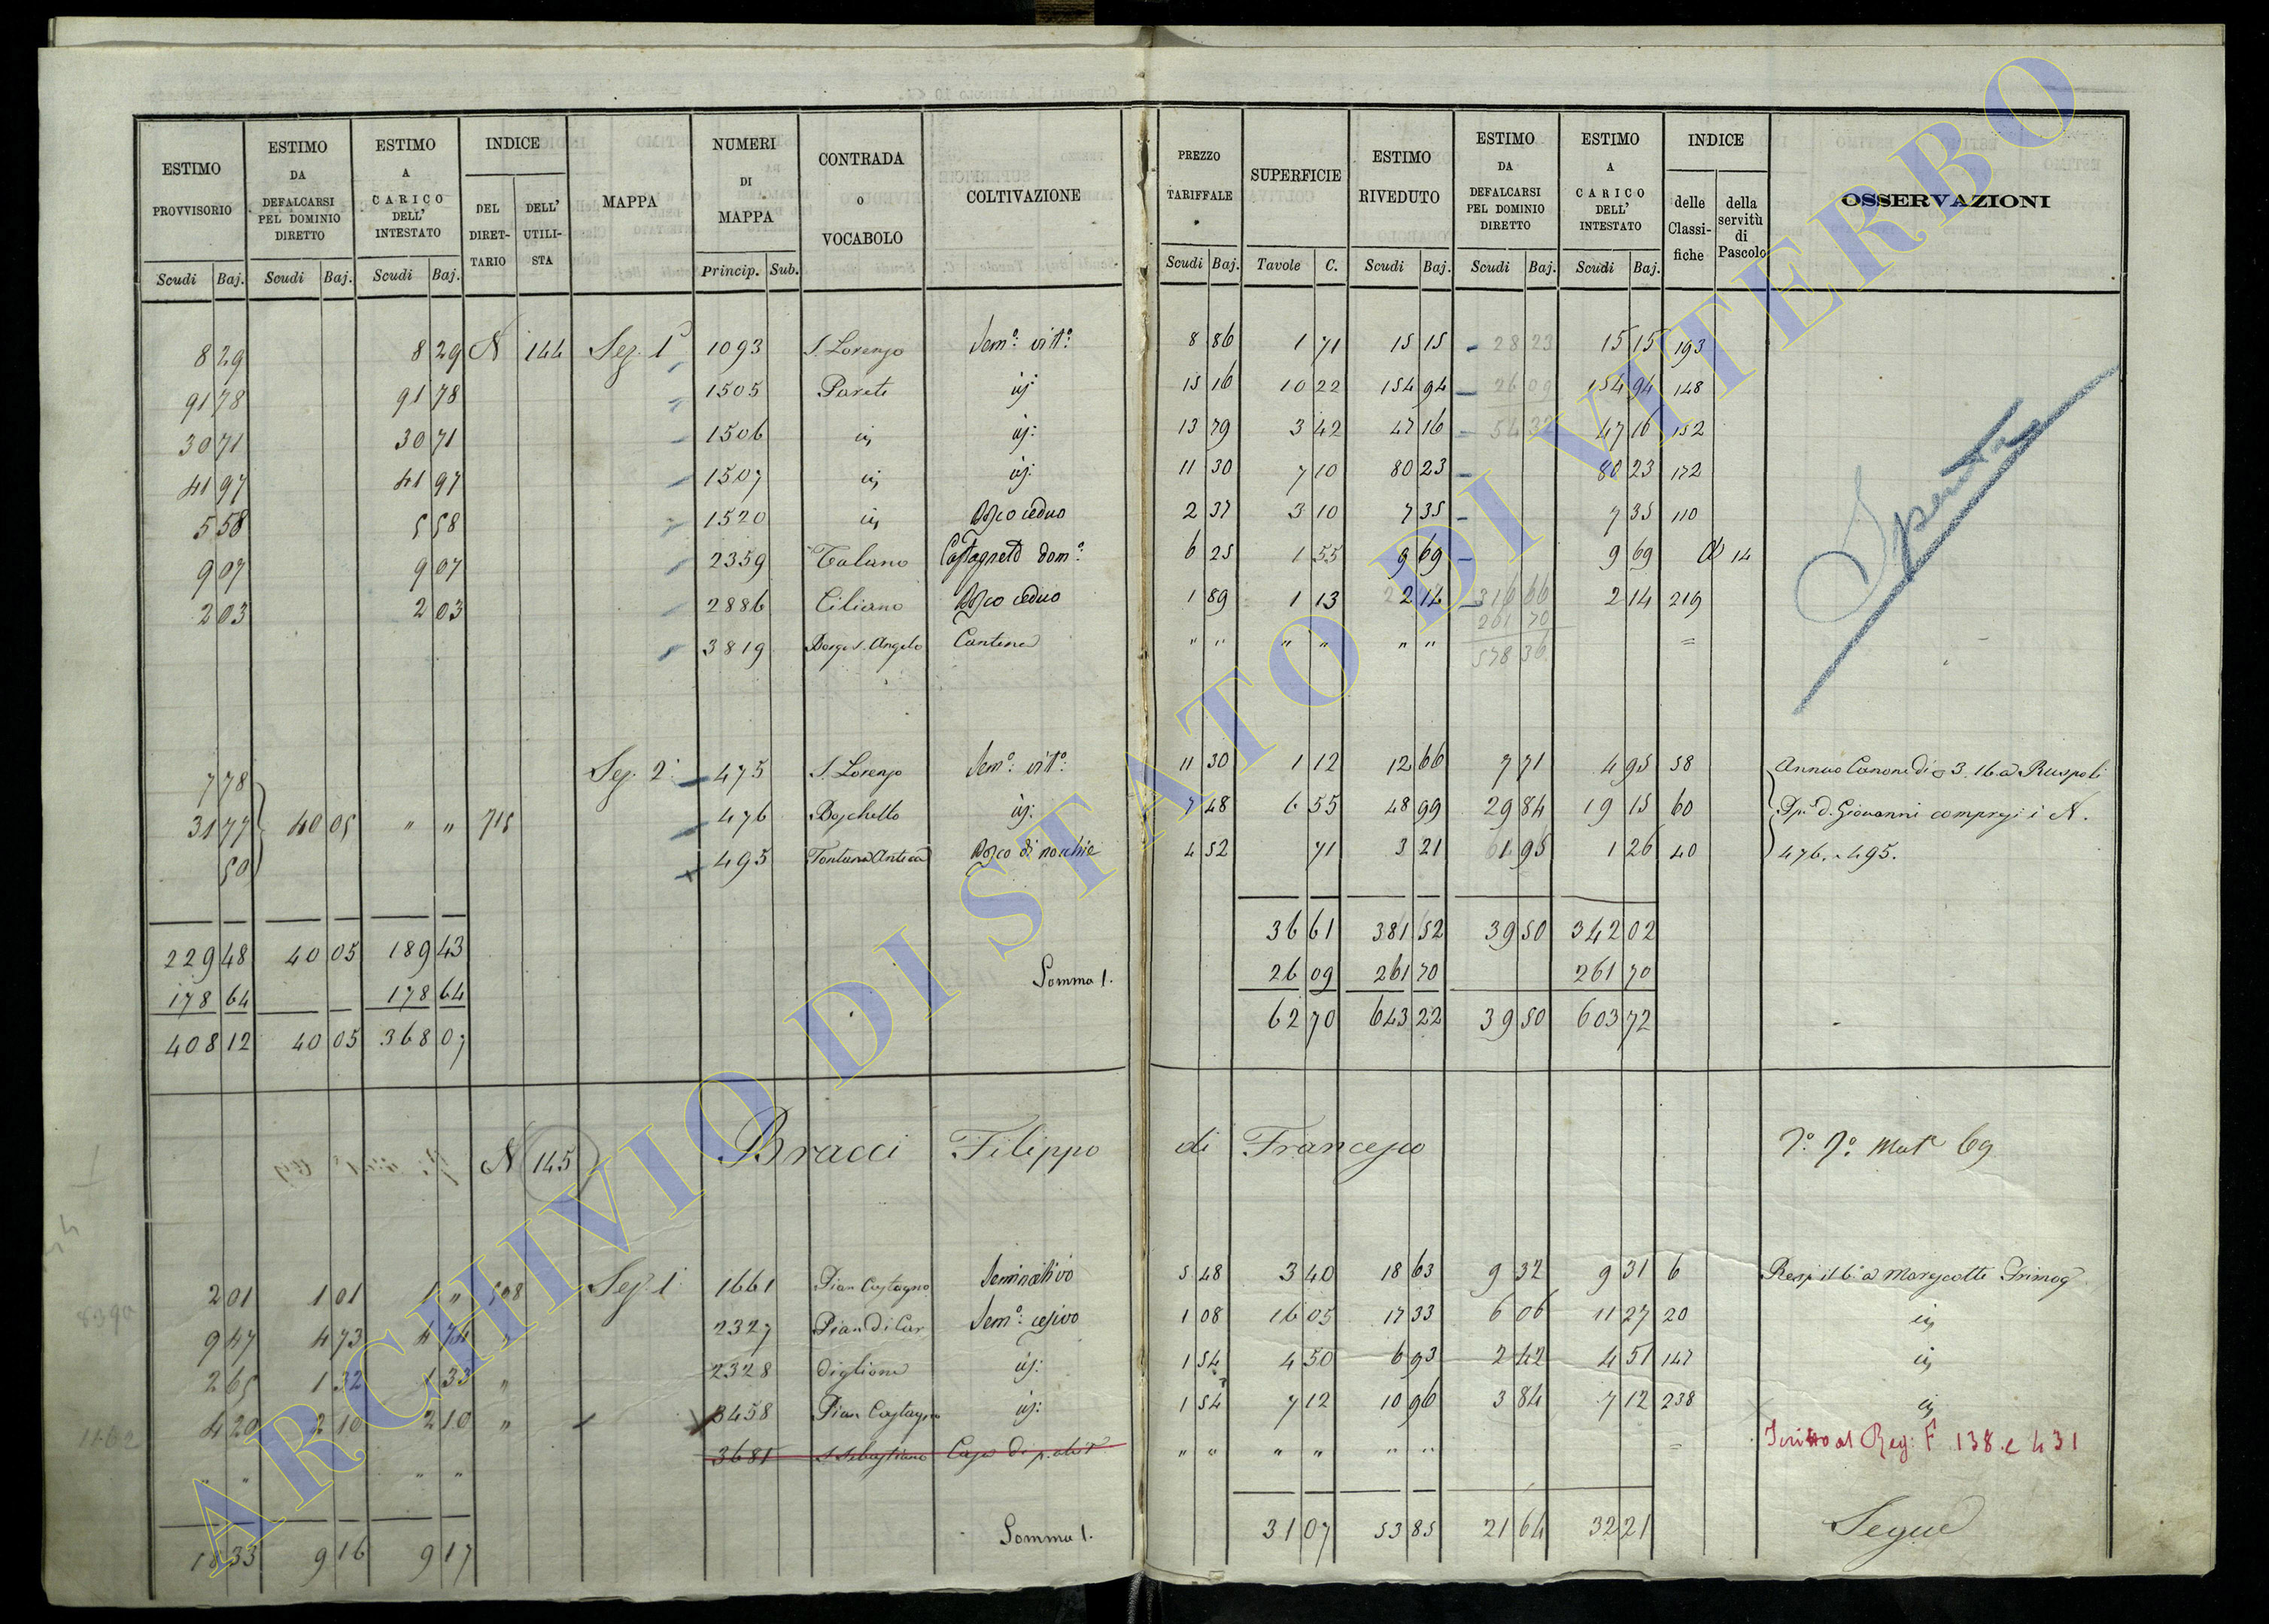 ESTIMO PROVVISORIO Scudi Baj. | ESTIMO DA DEFALCARSI PEL DOMINIO DIRETTO Scudi Baj. | ESTIMO A CARICO DELL' INTESTATO Scudi Baj. | INDICE DEL DIRETTARIO DELL' UTILISTA | MAPPA | NUMERI DI MAPPA Princip. Sub. | CONTRADA o VOCABOLO | COLTIVAZIONE | PREZZO TARIFFALE Scudi Baj. | SUPERFICIE Tavole C. | ESTIMO RIVEDUTO Scudi Baj. | ESTIMO DA DEFALCARSI PEL DOMINIO DIRETTO Scudi Baj. | ESTIMO A CARICO DELL' INTESTATO Scudi Baj. | INDICE delle Classifiche della servitù di Pascolo | OSSERVAZIONI
8 29 8 29 N 144 Sez. 1ª 1093 S. Lorenzo Sem.º vit.º 8 86 1 71 15 15 28 23 15 15 193
91 78 91 78 1505 Parete id: 15 16 10 22 154 94 26 09 154 94 148
30 71 30 71 1506 id id: 13 79 3 42 47 16 54 32 47 16 152
41 97 41 97 1507 id id: 11 30 7 10 80 23 80 23 172
5 58 5 58 1520 id Bosco ceduo 2 37 3 10 7 35 7 35 110
9 07 9 07 2359 Talano Castagneto dom.º 6 25 1 55 9 69 9 69 14
2 03 2 03 2886 Ciliano Bosco ceduo 1 89 1 13 2 14 316 66 2 14 219
261 70
3819 Borgo S. Angelo Cantina " " " " " " 578 36 =
Spenta
7 78 Sez. 2ª 475 S. Lorenzo Sem.º vit.º 11 30 1 12 12 66 7 71 4 95 58 Annuo Canone di 3.16 a Ruspoli
31 77 40 05 " " 715 476 Boschetto id: 7 48 6 55 48 99 29 84 19 15 60 D. Giovanni compresi i N.
50 495 Fontana Antica Bosco di nocchie 4 52 71 3 21 1 95 1 26 40 476. 495.
229 48 40 05 189 43 36 61 381 52 39 50 342 02
178 64 178 64 Somma 1. 26 09 261 70 261 70
408 12 40 05 368 07 62 70 643 22 39 50 603 72
N 145 Bracci Filippo di Francesco Mat. 69
2 01 1 01 1 " 508 Sez. 1ª 1661 Pian Castagno Seminativo 5 48 3 40 18 63 9 32 9 31 6 Resp. a Marescotti
9 47 4 73 4 74 " 2327 Pian di Car Sem.º cesivo 1 08 16 05 17 33 6 06 11 27 20 id
2 65 1 32 1 33 " 2328 diglione id: 1 54 4 50 6 93 2 42 4 51 147 id
4 20 2 10 2 10 " 3458 Pian Castagno id: 1 54 7 12 10 96 3 84 7 12 238 id
" " " " 3681 S. Sebastiano Casa " " " " " " = Scritto al Reg: F. 138 e 431
18 33 9 16 9 17 Somma 1. 31 07 53 85 21 64 32 21 Segue
ARCHIVIO DI STATO DI VITERBO